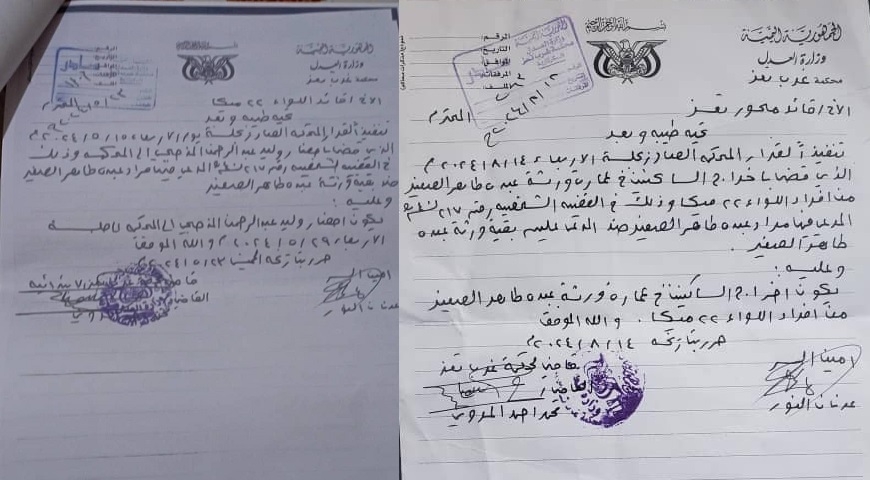 الجمهورية اليمنية
وزارة العدل
محكمة غرب تعز
بسم الله الرحمن الرحيم
الرقم:
التاريخ:
الموافق:
المرفقات:
الأخ/ قائد محور تعز المحترم
تحية طيبة وبعد
تنفيذاً لقرار المحكمة الصادر بجلسة الأربعاء ٢٠٢٤/٨/١٤م
الذي قضى باخراج الساكنين في عمارة ورثة عبده طاهر الصغير
من أفراد اللواء ٢٢ ميكا وذلك في القضية الشخصية رقم ٢١٧ لسنة
المدعي فيها مراد عبده طاهر الصغير ضد المدعى عليهم بقية ورثة عبده
طاهر الصغير.
وعليه:
يكون اخراج الساكنين في عمارة ورثة عبده طاهر الصغير
من أفراد اللواء ٢٢ ميكا. والله الموفق
حرر بتاريخه ٢٠٢٤/٨/١٤م
أمين السر
عدنان النور
قاضي محكمة غرب تعز
القاضي/
محمد احمد
الجمهورية اليمنية
وزارة العدل
محكمة غرب تعز
الأخ/ قائد اللواء ٢٢ ميكا المحترم
تحية طيبة وبعد
تنفيذاً لقرار المحكمة الصادر بجلسة يوم الأربعاء ٢٠٢٤/٥/١٥م
الذي قضى باحضار وليد عبدالرحمن الى المحكمة وذلك
في القضية الشخصية رقم ٢١٧ المدعي فيها مراد عبده طاهر الصغير
ضد بقية ورثة عبده الصغير
وعليه:
يكون احضار وليد عبدالرحمن الى المحكمة بجلسة
الأربعاء ٢٠٢٤/٥/٢٩م والله الموفق
حرر بتاريخه الخميس ٢٠٢٤/٥/٢٣م
أمين السر
عدنان النور
القاضي/